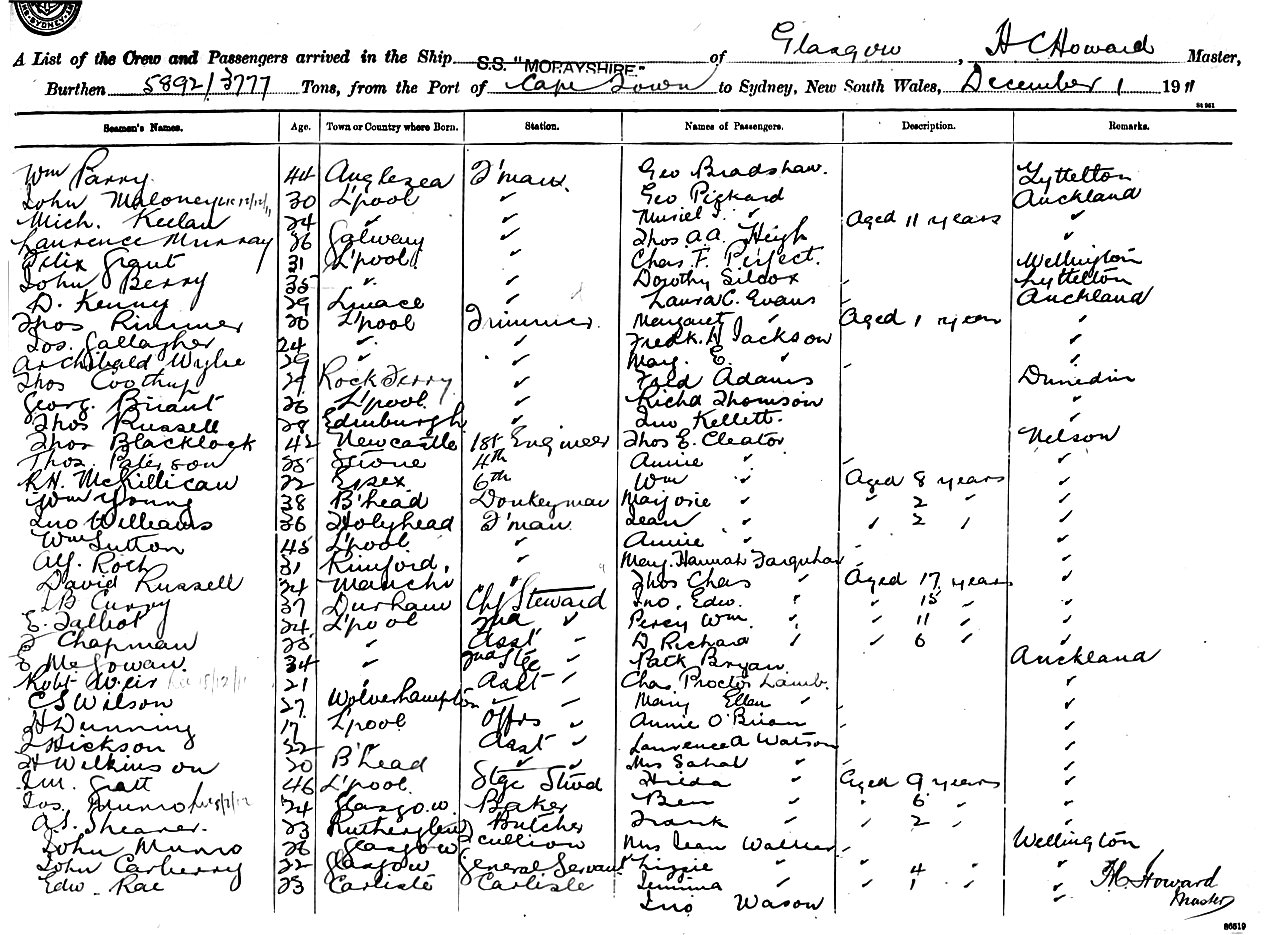 SYDNEY
A List of the Crew and Passengers arrived in the Ship S.S. "MORAYSHIRE" of Glasgow, H C Howard Master,
Burthen 5892/3777 Tons, from the Port of Cape Town to Sydney, New South Wales, December 1 1911
Seamen's Names. Age. Town or Country where Born. Station. Names of Passengers. Description. Remarks.
Wm Parry 44 Anglesea F'man. Geo Bradshaw. Lyttelton
John Maloney 30 L'pool " Geo Pickard Auckland
Mich. Keelan 24 " " Muriel " Aged 11 years "
Laurence Murray 36 Galway " Thos A.A. Heigh "
Felix Grant 31 L'pool " Chas. F. Perfect. Wellington
John Berry 35 " " Dorothy Silcox Lyttelton
D. Kenny 29 " Laura C. Evans Auckland
Thos Rimmer 20 L'pool Trimmer. Margaret " Aged 1 year "
Jos. Gallagher 24 " " Fredk. H Jackson "
Archibald Wylie 29 " " Mary. E. " "
Thos 24 Rock Ferry " Adams Dunedin
Georg. Briant 26 L'pool " Richd Thomson "
Thos Russell 28 Edinburgh " Jno Kellett. "
Thos Blacklock 42 Newcastle 1st Engineer Thos E. Cleator Nelson
Thos. Paterson 25 4th Annie " "
R.H. McKillican 22 6th Wm " Aged 8 years "
Wm Young 38 B'head Donkeyman Marjorie " " 2 " "
Jno Williams 36 Holyhead F'man. Jean " " 2 " "
Wm Sutton 45 L'pool " Annie " "
Alf. Roch 31 " Mary. Hannah Farquhar "
David Russell 24 Manchr " Thos Chas " Aged 17 years "
Curry 37 Durham Chf Steward Jno. Edw. " " 15 " "
E. Talbot 24 L'pool 2nd " Percy Wm. " " 11 " "
Chapman 25 " Asst " D Richard " " 6 " "
McGowan. 34 " " Patk Bryan. Auckland
Robt Weir 21 " Asst " Chas Proctor Lamb. "
C S Wilson 27 Wolverhampton " Mary Ellen " "
H Dunning 17 L'pool Offrs " Annie O'Brian "
Hickson 22 " Asst " Laurence A Watson "
H Wilkinson 20 B'head " Mrs Sahal "
46 L'pool Stge Stwd Hilda " Aged 9 years "
Jos. Munro 24 Glasgow. Baker Ben " " 6 " "
A.S. Shearer. 23 Rutherglen Butcher Frank " " 2 " "
John Munro 26 Glasgow Scullion Mrs Jean Walker Wellington
John Carberry 22 Glasgow General Servant Lizzie " " 4 " "
Edw. Rae 23 Carlisle Carlisle Jemima " " 1 " "
Jno Wason "
H C Howard
Master
86519